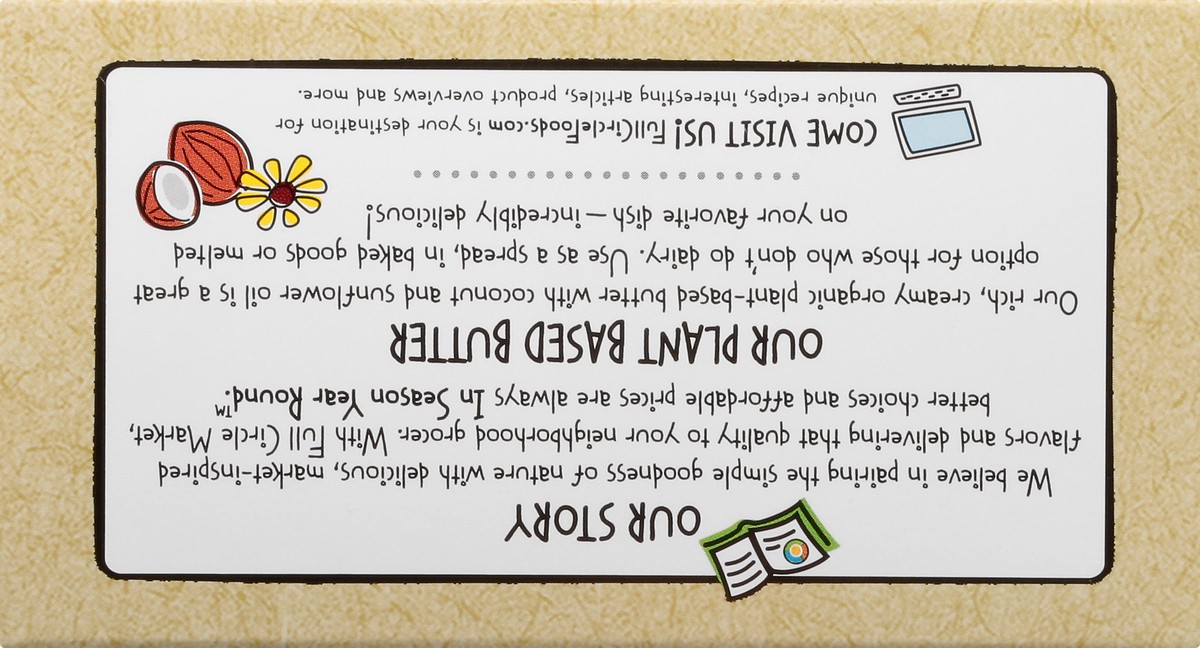 OUR STORY
We believe in pairing the simple goodness of nature with delicious, market-inspired
flavors and delivering that quality to your neighborhood grocer. With Full Circle Market,
better choices and affordable prices are always In Season Year Round.™
OUR PLANT BASED BUTTER
Our rich, creamy organic plant-based butter with coconut and sunflower oil is a great
option for those who don't do dairy. Use as a spread, in baked goods or melted
on your favorite dish – incredibly delicious!
COME VISIT US! FullCircleFoods.com is your destination for
unique recipes, interesting articles, product overviews and more.